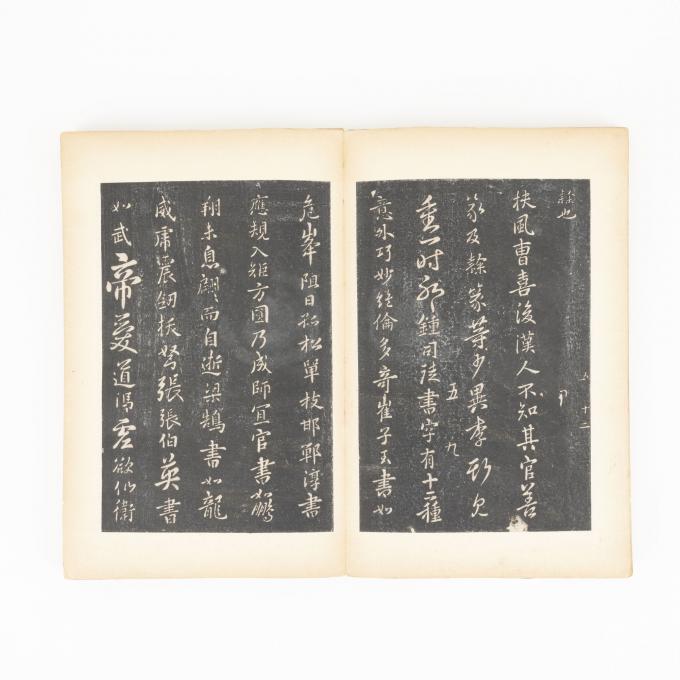 隸也
扶風曹喜後漢人不知其官善
篆及隸篆等少異李斯見
重一时鍾司徒書字有十二種
意外巧妙絶倫多奇崔子玉書如
五
九
十二
危峯阻日孤松單枝邯鄲淳書
應規入矩方圓乃成師宜官書如鵬
翔未息翩而自逝梁鵠書如龍
威虎震劒拔弩張張伯英書
如武帝愛道馮虛欲仙衛